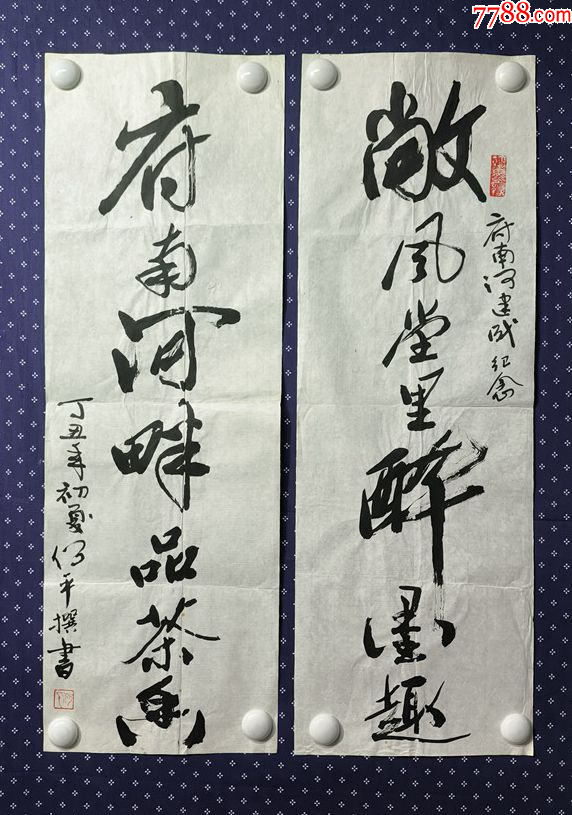 7788.com
敞风堂里醉墨趣
府南河建成纪念
府南河畔品茶香
丁丑年初夏平撰書